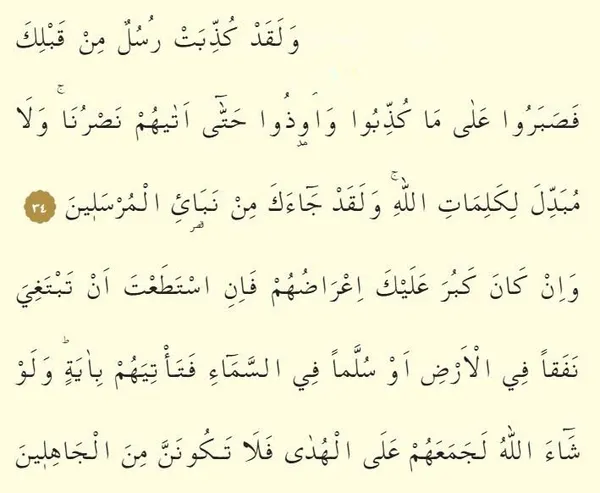 وَلَقَدْ كُذِّبَتْ رُسُلٌ مِنْ قَبْلِكَ
فَصَبَرُوا عَلٰى مَا كُذِّبُوا وَاُو۫ذُوا حَتّٰٓى اَتٰيهُمْ نَصْرُنَاۚ وَلَا
مُبَدِّلَ لِكَلِمَاتِ اللّٰهِۚ وَلَقَدْ جَٓاءَكَ مِنْ نَبَا۬ئِ الْمُرْسَل۪ينَ ٣٤
وَاِنْ كَانَ كَبُرَ عَلَيْكَ اِعْرَاضُهُمْ فَاِنِ اسْتَطَعْتَ اَنْ تَبْتَغِيَ
نَفَقاً فِي الْاَرْضِ اَوْ سُلَّماً فِي السَّمَٓاءِ فَتَأْتِيَهُمْ بِاٰيَةٍۜ وَلَوْ
شَٓاءَ اللّٰهُ لَجَمَعَهُمْ عَلَى الْهُدٰى فَلَا تَكُونَنَّ مِنَ الْجَاهِل۪ينَ